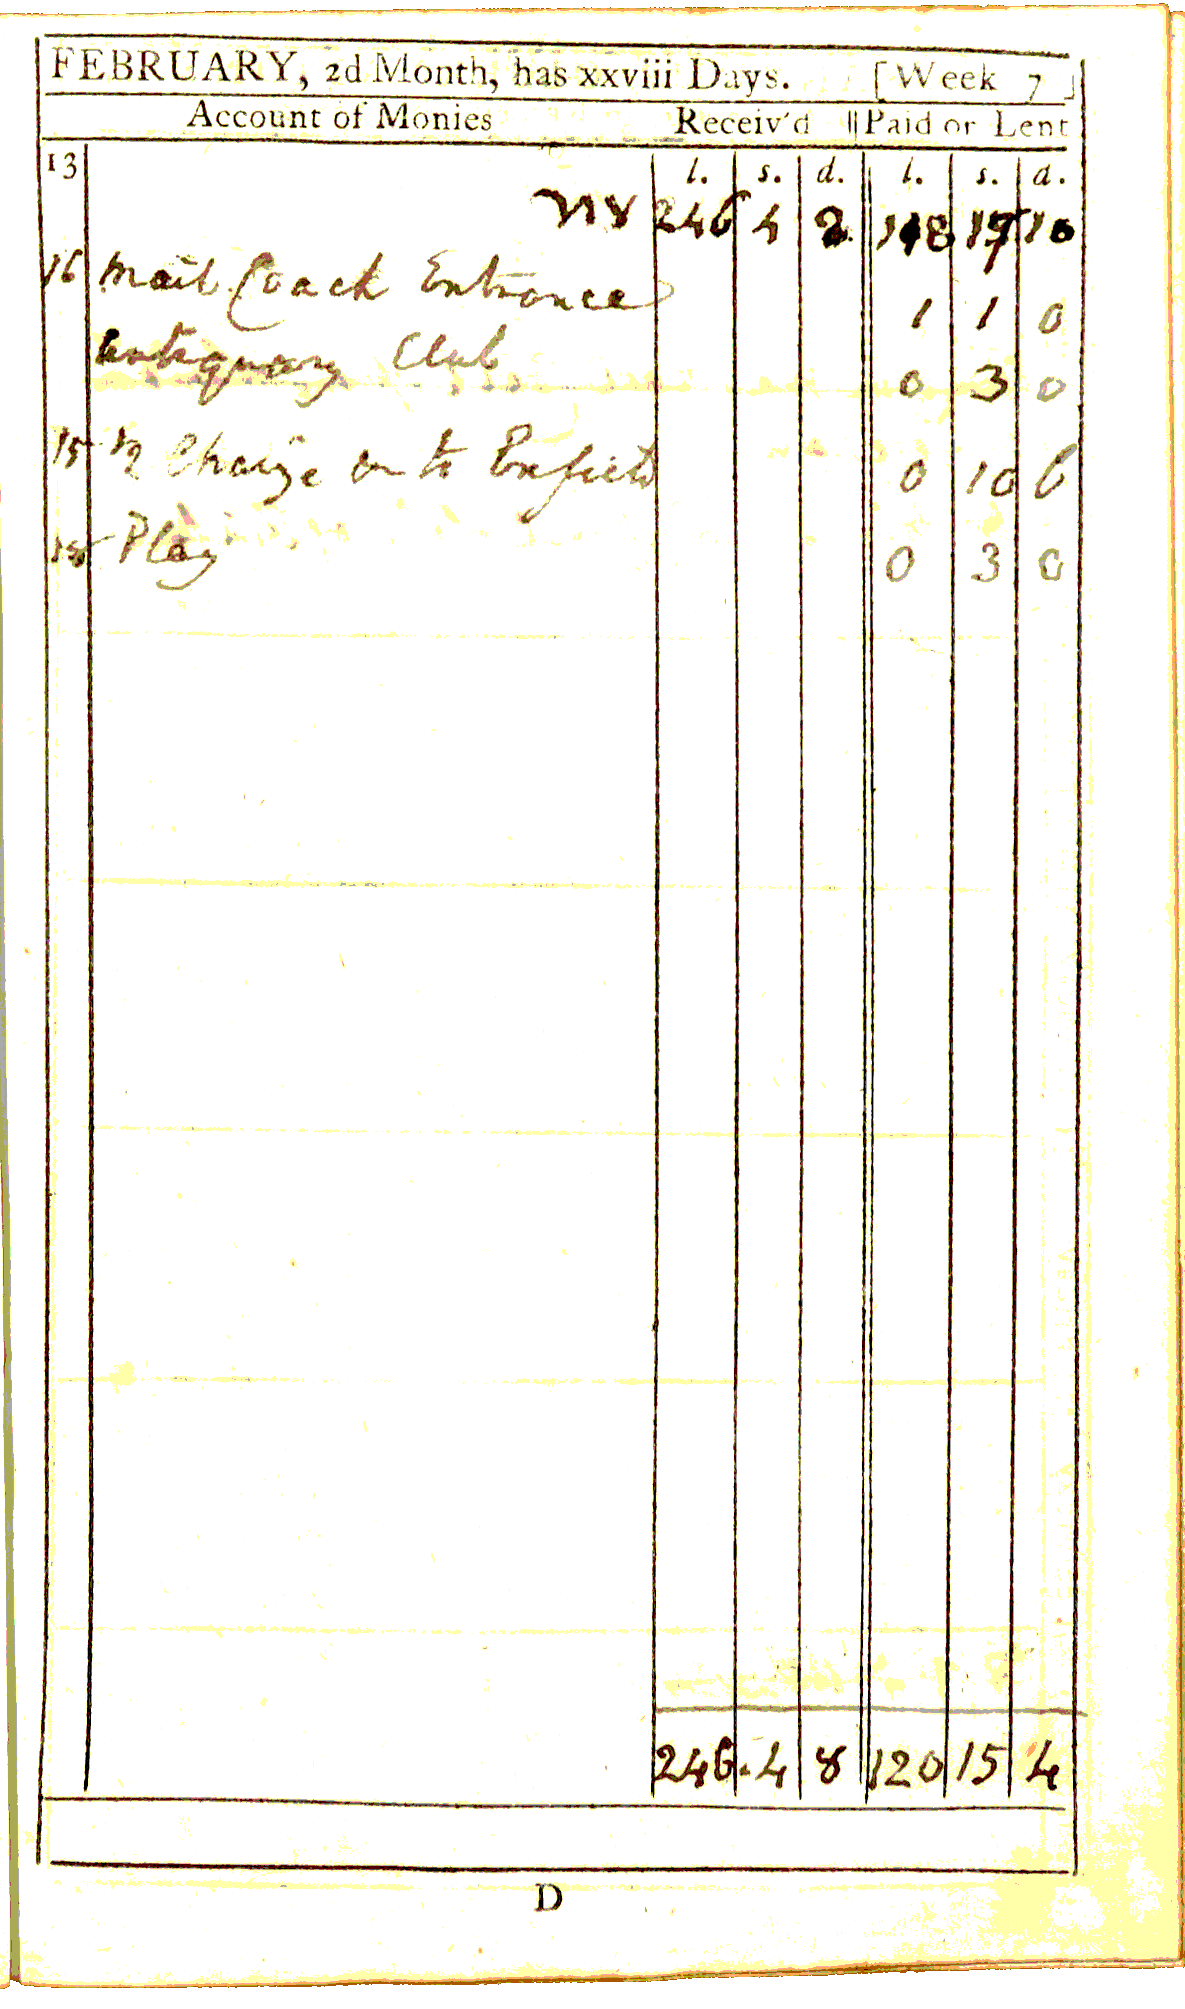 FEBRUARY, 2d Month, has xxviii Days. [Week 7]
Account of Monies Receiv'd Paid or Lent
13 l. s. d. l. s. d.
246 4 118 17 10
16 Mail Coach Entrance 1 1 0
Antiquary Club 0 3 0
15 1/2 Chaise on to 0 10 6
18 Play 0 3 0
246. 4 8 120 15 4
D